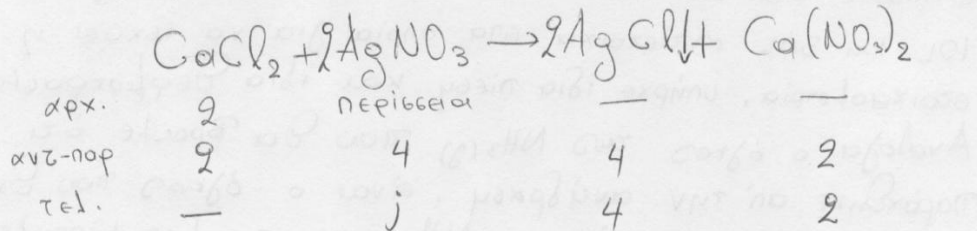 CaCl₂ + 2AgNO₃ → 2AgCl↓ + Ca(NO₃)₂
αρχ. 2 περίσσεια — —
αντ-παρ 2 4 4 2
τελ. — ; 4 2